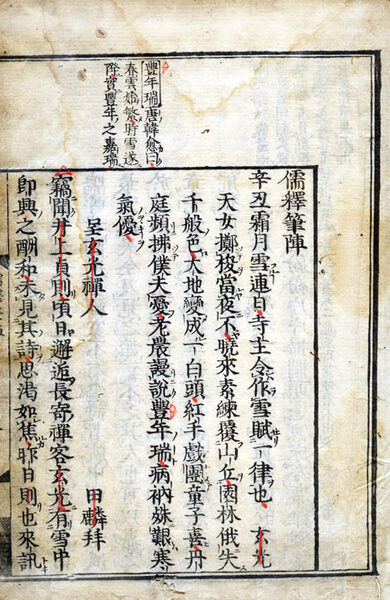 豐年瑞唐韓愈曰
春雲始繁時雪遂
降實豐年之嘉瑞
儒釋筆陣
辛丑霜月雪連日寺主令作雪賦一律也 玄光
天女擲梭當夜不曉來素練覆山丘園林俄失
千般色大地變成一白頭紅手戲團童子喜丹
庭頻拂僕夫憂老農謾說豐年瑞病衲殊艱寒
氣優
呈玄光禪人 甲麟拜
竊聞井上貞則頃日邂逅長寄禪客玄光有雪中
即興之酬和未見其詩思渴如焦昨日則也來訊